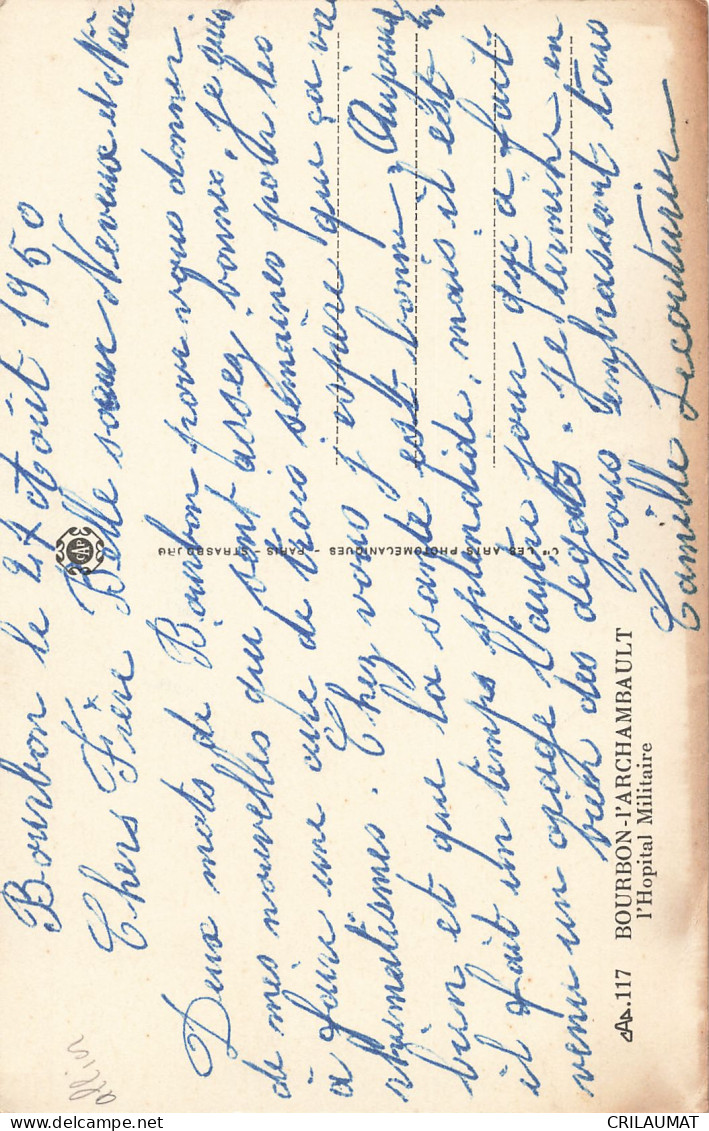 Bourbon le 27 Août 1950
Chers Frère Belle sœur Neveux et Nièce
Deux mots de Bourbon pour vous donner
de mes nouvelles qui sont assez bonnes, je suis
à faire une cure de trois semaines pour les
rhumatismes. Chez vous j'espère que ça va
bien et que la santé est bonne, Aujourd'hui
il fait un temps splendide, mais il est
venu un orage l'autre jour qui a fait
bien des dégats. Je termine en
vous embrassant tous
Camille Lecouturier
CAP
Cie LES ARTS PHOTOMÉCANIQUES - PARIS - STRASBOURG
CAP.117 BOURBON-l'ARCHAMBAULT
l'Hopital Militaire
allier
CRILAUMAT